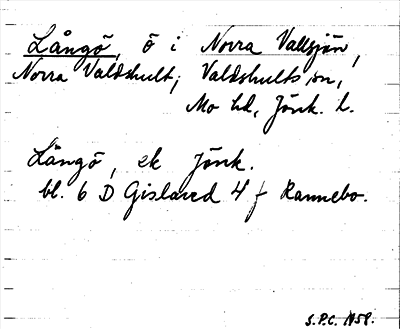 Långö, ö i Norra Vallsjön,
Norra Valdshult, Valdshults sn,
Mo hd, Jönk. l.
Långö, ek Jönk.
bl. 6 D Gislaved 4 f Rannebo.
S.P.C. 1959.